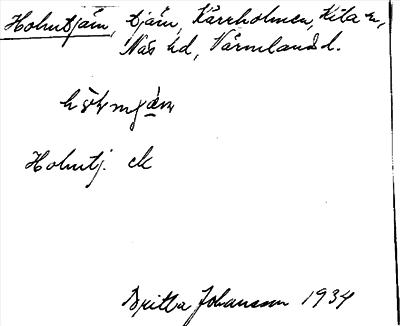 Holmtjärn, tjärn, Kärrholmen, Kila sn,
Näs hd, Värmland l.
Holmtj. ek
Britta Johansson 1934